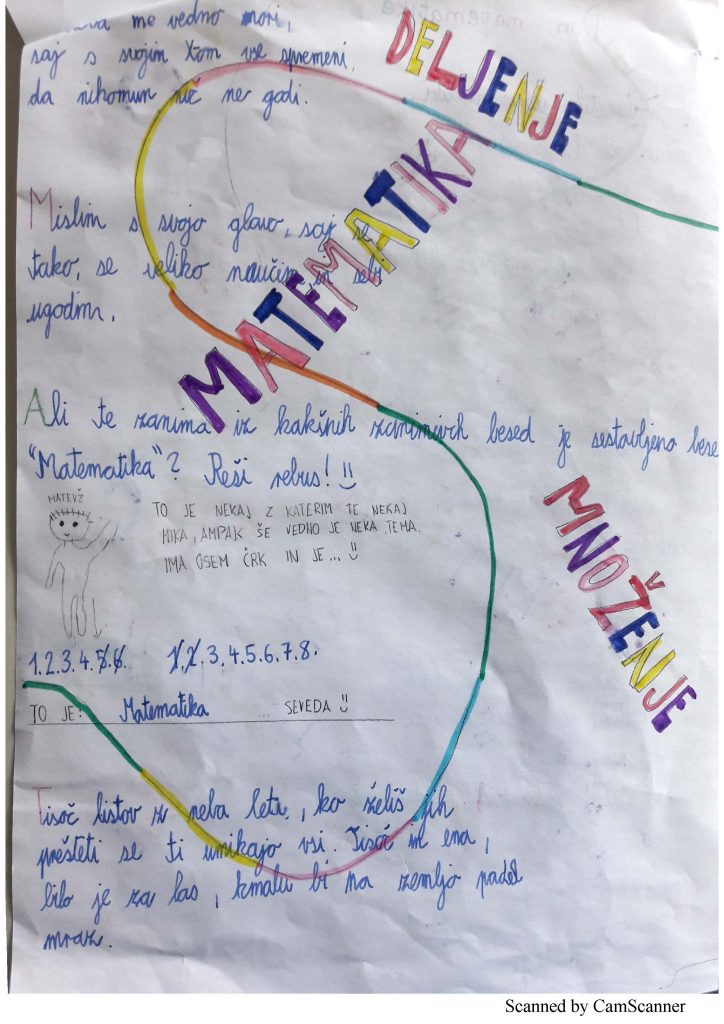 me vedno mori,
saj s svojim tom vse spremeni,
da nihomur nič ne godi.
DELJENJE
MATEMATIKA
Mislim s svojo glavo, saj se
tako, se veliko naučim in sebi
ugodim.
Ali te zanima iz kakšnih zanimivih besed je sestavljena bese
"Matematika"? Reši rebus!
MATEVŽ
TO JE NEKAJ Z KATERIM TE NEKAJ
MIKA, AMPAK ŠE VEDNO JE NEKA TEMA.
IMA OSEM ČRK IN JE...
MNOŽENJE
1.2.3.4.5.6. 1.2.3.4.5.6.7.8.
TO JE: Matematika ... SEVEDA
Tisoč listov z neba leti, ko želiš jih
prešteti se ti umikajo vsi. Tisoč in ena,
bilo je za las, kmalu bi na zemljo padel
mraz.
Scanned by CamScanner